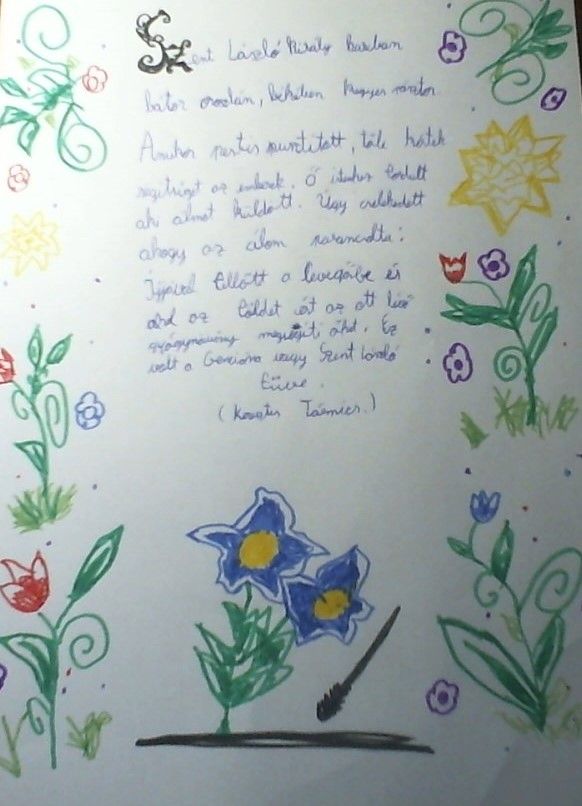 Szent László Király harcban
bátor oroszlán, békében kegyes pásztor
Amikor pestis pusztított, tőle kértek
segítséget az emberek. Ő istenhez fordult
aki álmot küldött. Úgy cselekedett
ahogy az álom parancsolta:
Íjjával fellőtt a levegőbe és
ahol az földet ért az ott lévő
gyógynövény megsegíti őket. Ez
volt a Genciána vagy Szent László
füve.
(Kovats)